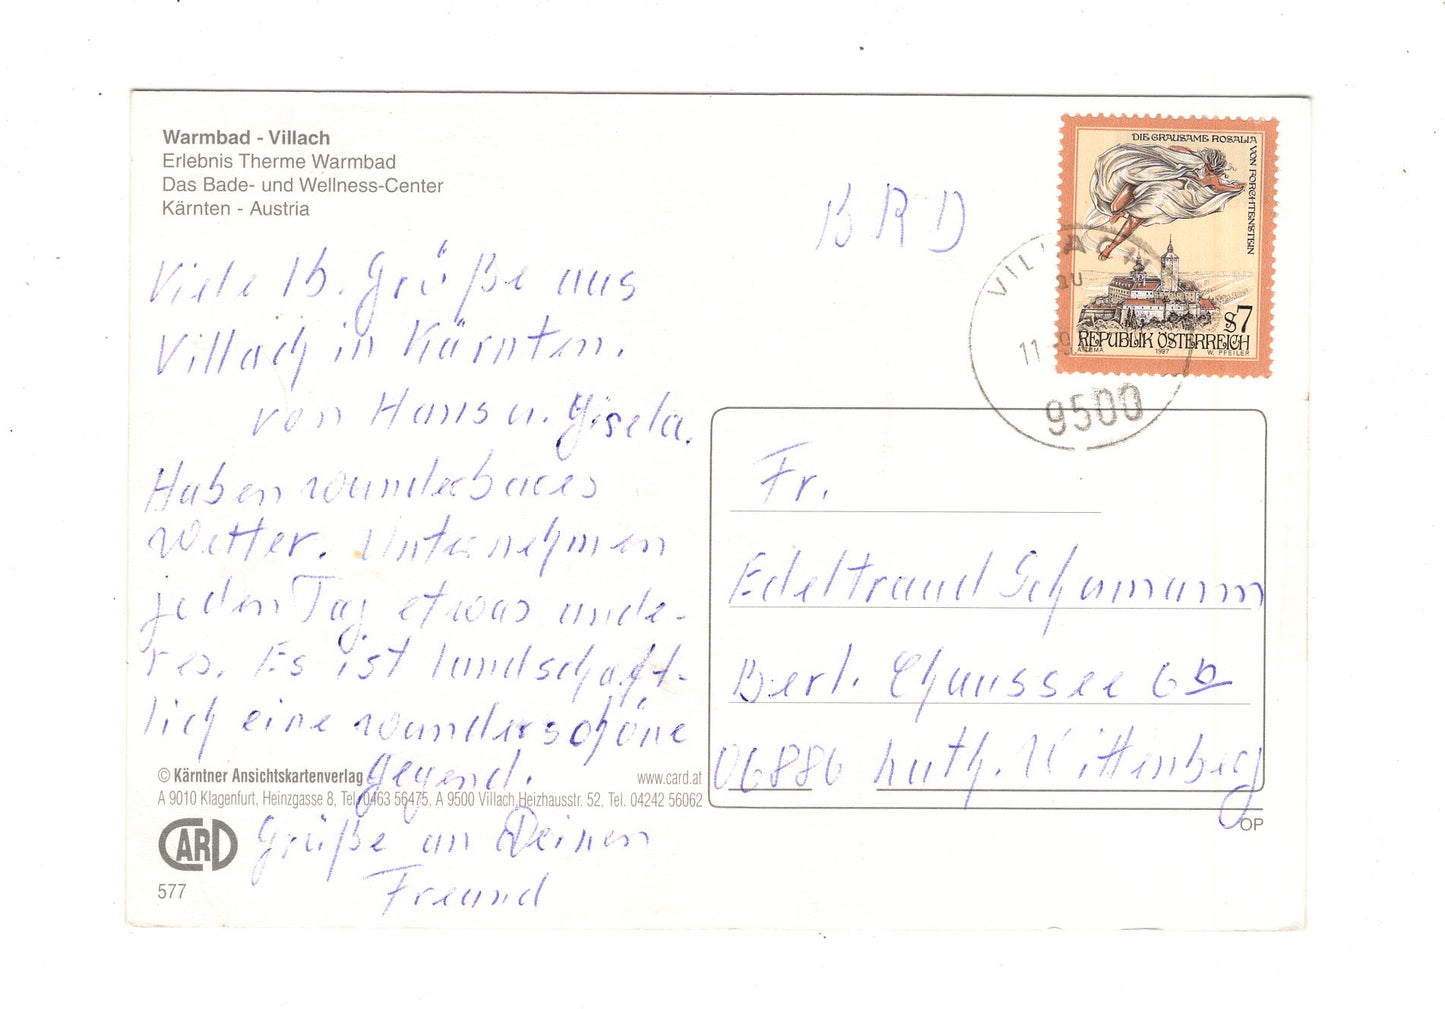 Warmbad - Villach
Erlebnis Therme Warmbad
Das Bade- und Wellness-Center
Kärnten - Austria
Viele lb. Grüße aus
Villach in Kärnten.
von Hans u. Gisela.
Haben wunderbares
Wetter. Unternehmen
jeden Tag etwas ande-
res. Es ist landschaft-
lich eine wunderschöne
Gegend.
Grüße an Deinen
Freund
© Kärntner Ansichtskartenverlag
www.card.at
A 9010 Klagenfurt, Heinzgasse 8, Tel. 0463 56475, A 9500 Villach, Heizhausstr. 52, Tel. 04242 56062
CARD
577
BRD
DIE GRAUSAME ROSALIA
VON FORCHTENSTEIN
S7
REPUBLIK ÖSTERREICH
1997
W. PFEILER
VILLACH
11
9500
Fr.
Edeltraud Schumann
Berl. Chaussee 6b
06886 Luth. Wittenberg
OP